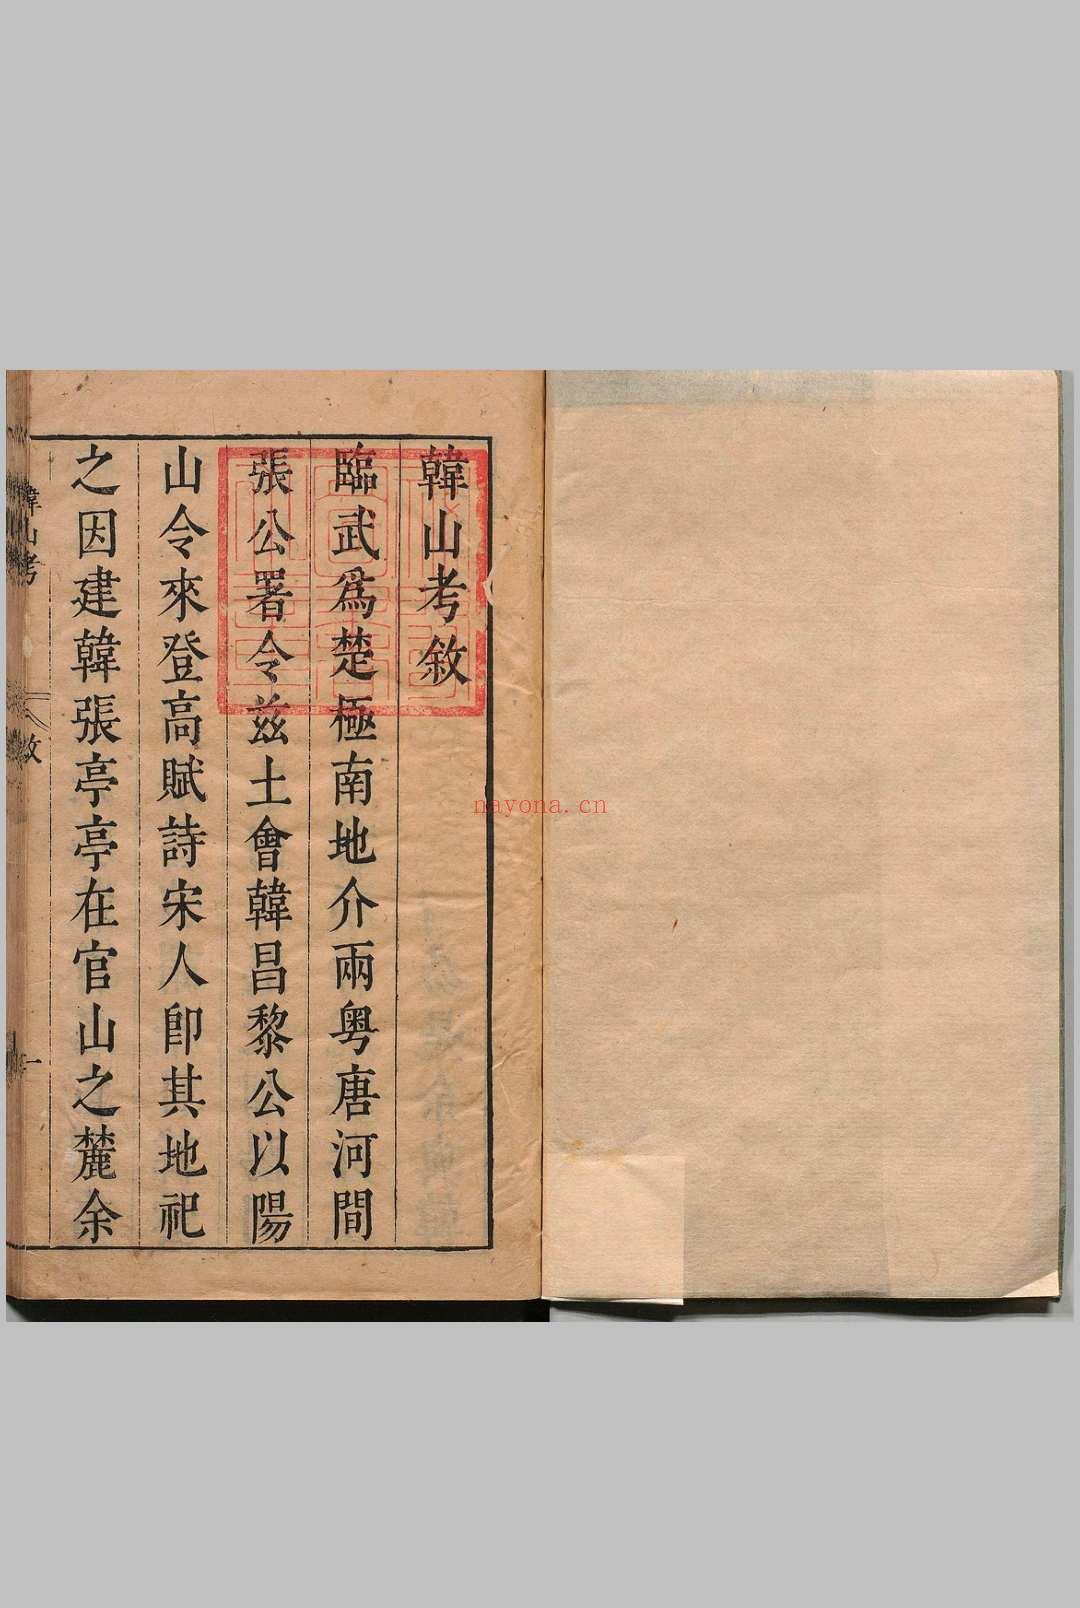 韓山考敘
臨武爲楚極南地介兩粤唐河間
張公署令兹土會韓昌黎公以陽
山令來登高賦詩宋人卽其地祀
之因建韓張亭亭在官山之麓余
韓山考
敘
一
nayona.cn